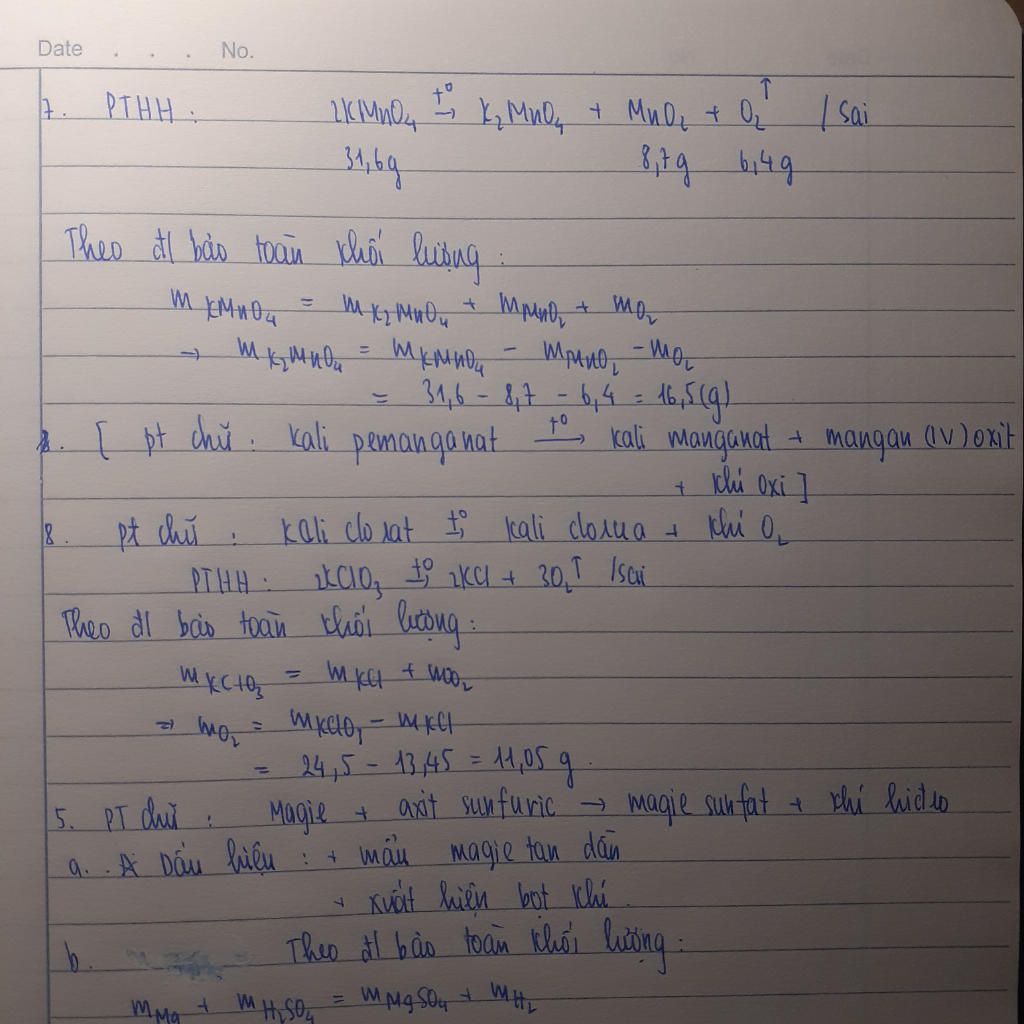 Date . . . No.
7. PTHH : 2KMnO₄ t⁰→ K₂MnO₄ + MnO₂ + O₂↑ / sai
31,6g 8,7g 6,4g
Theo đl bảo toàn khối lượng :
m KMnO₄ = m K₂MnO₄ + m MnO₂ + m O₂
→ m K₂MnO₄ = m KMnO₄ - m MnO₂ - m O₂
= 31,6 - 8,7 - 6,4 = 16,5(g)
[ pt chữ : kali pemanganat t⁰→ kali manganat + mangan (IV) oxit
+ khí oxi ]
8. pt chữ : Kali clorat t⁰→ kali clorua + khí O₂
PTHH : 2KClO₃ t⁰→ 2KCl + 3O₂↑ /sai
Theo đl bảo toàn khối lượng :
m KClO₃ = m KCl + m O₂
⇒ m O₂ = m KClO₃ - m KCl
= 24,5 - 13,45 = 11,05 g.
5. PT chữ : Magie + axit sunfuric → magie sunfat + khí hiđro
a. Dấu hiệu : + mẩu magie tan dần
+ xuất hiện bọt khí.
b. Theo đl bảo toàn khối lượng :
m Mg + m H₂SO₄ = m MgSO₄ + m H₂